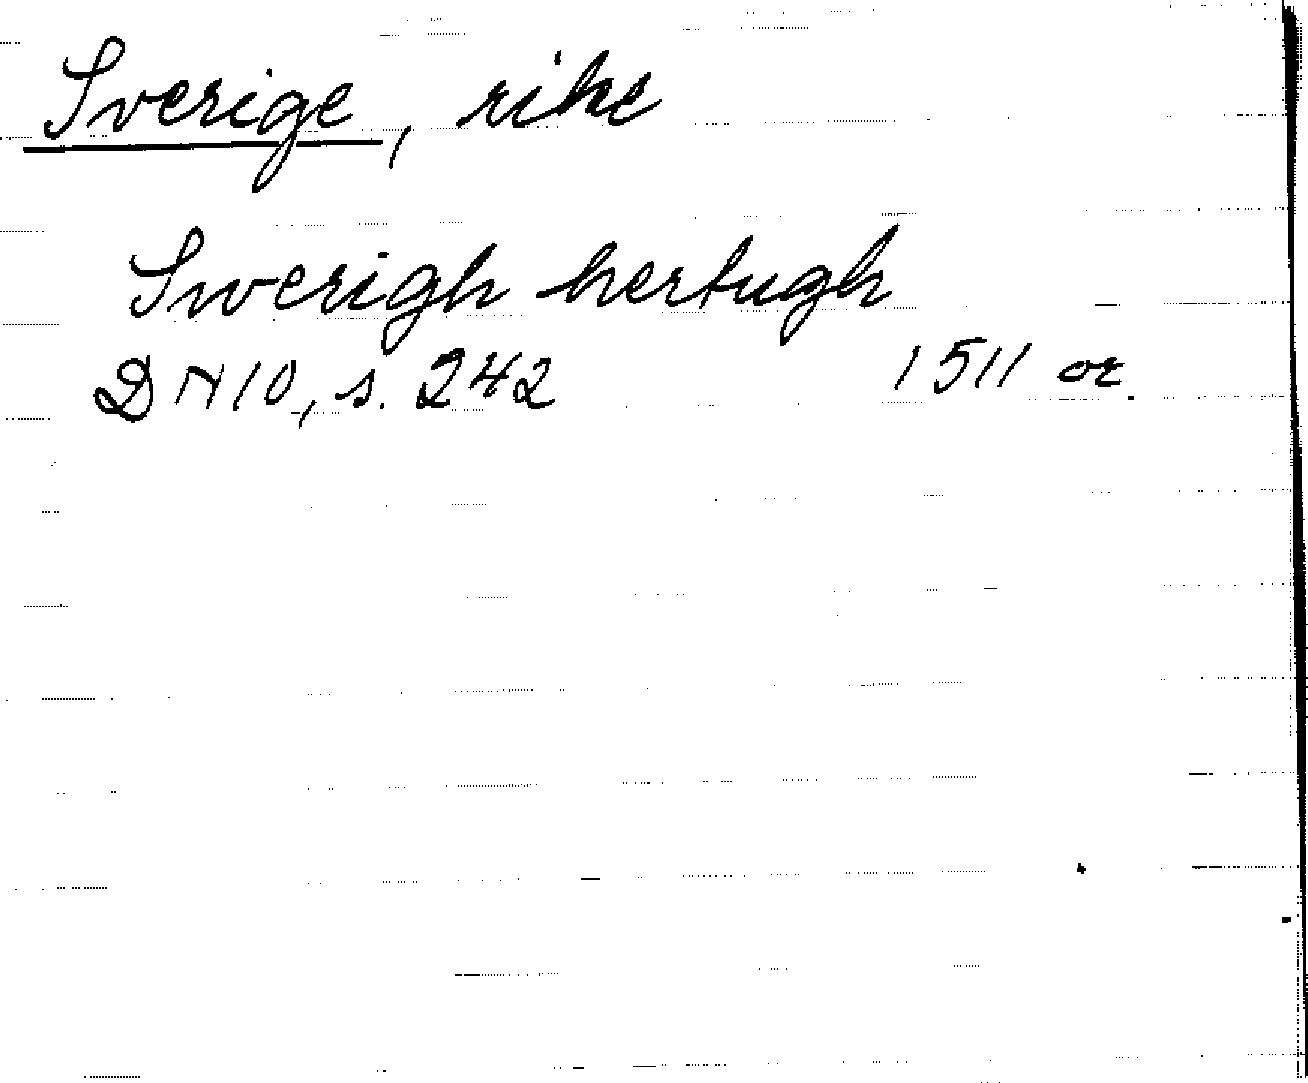 Sverige, rike
Swerigh hertugh
DN10, s. 242 1511 or.